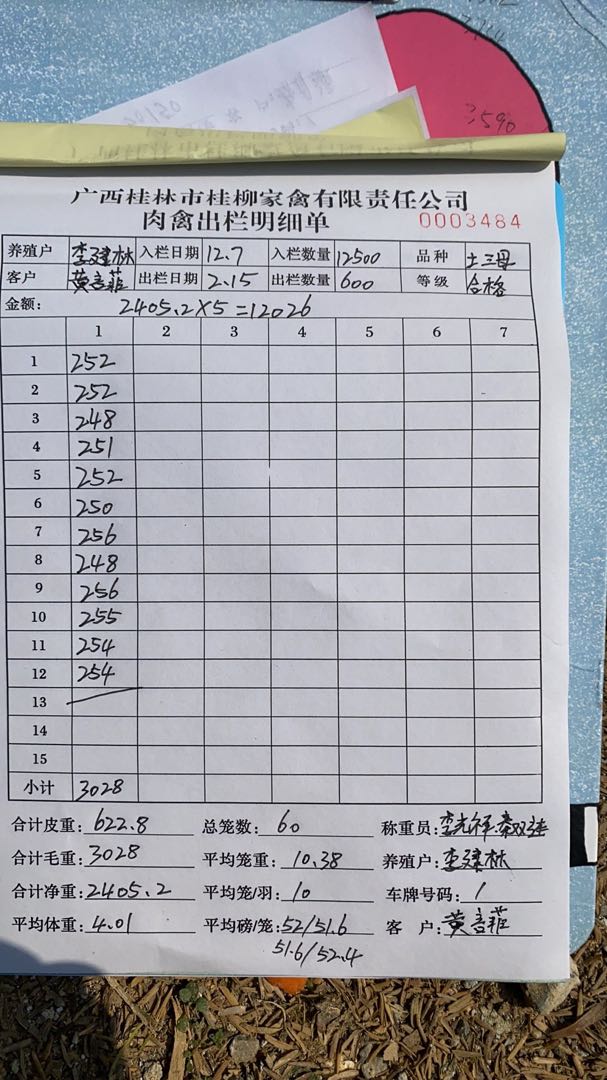 3590
广西桂林市桂柳家禽有限责任公司
肉禽出栏明细单 0003484
养殖户 李建林 入栏日期 12.7 入栏数量 12500 品种 土三母
客户 黄言菲 出栏日期 2.15 出栏数量 600 等级 合格
金额: 2405.2×5=12026
1 2 3 4 5 6 7
1 252
2 252
3 248
4 251
5 252
6 250
7 256
8 248
9 256
10 255
11 254
12 254
13
14
15
小计 3028
合计皮重: 622.8 总笼数: 60 称重员: 李光祥
合计毛重: 3028 平均笼重: 10.38 养殖户: 李建林
合计净重: 2405.2 平均笼/羽: 10 车牌号码: /
平均体重: 4.01 平均磅/笼: 52/51.6 客 户: 黄言菲
51.6/52.4